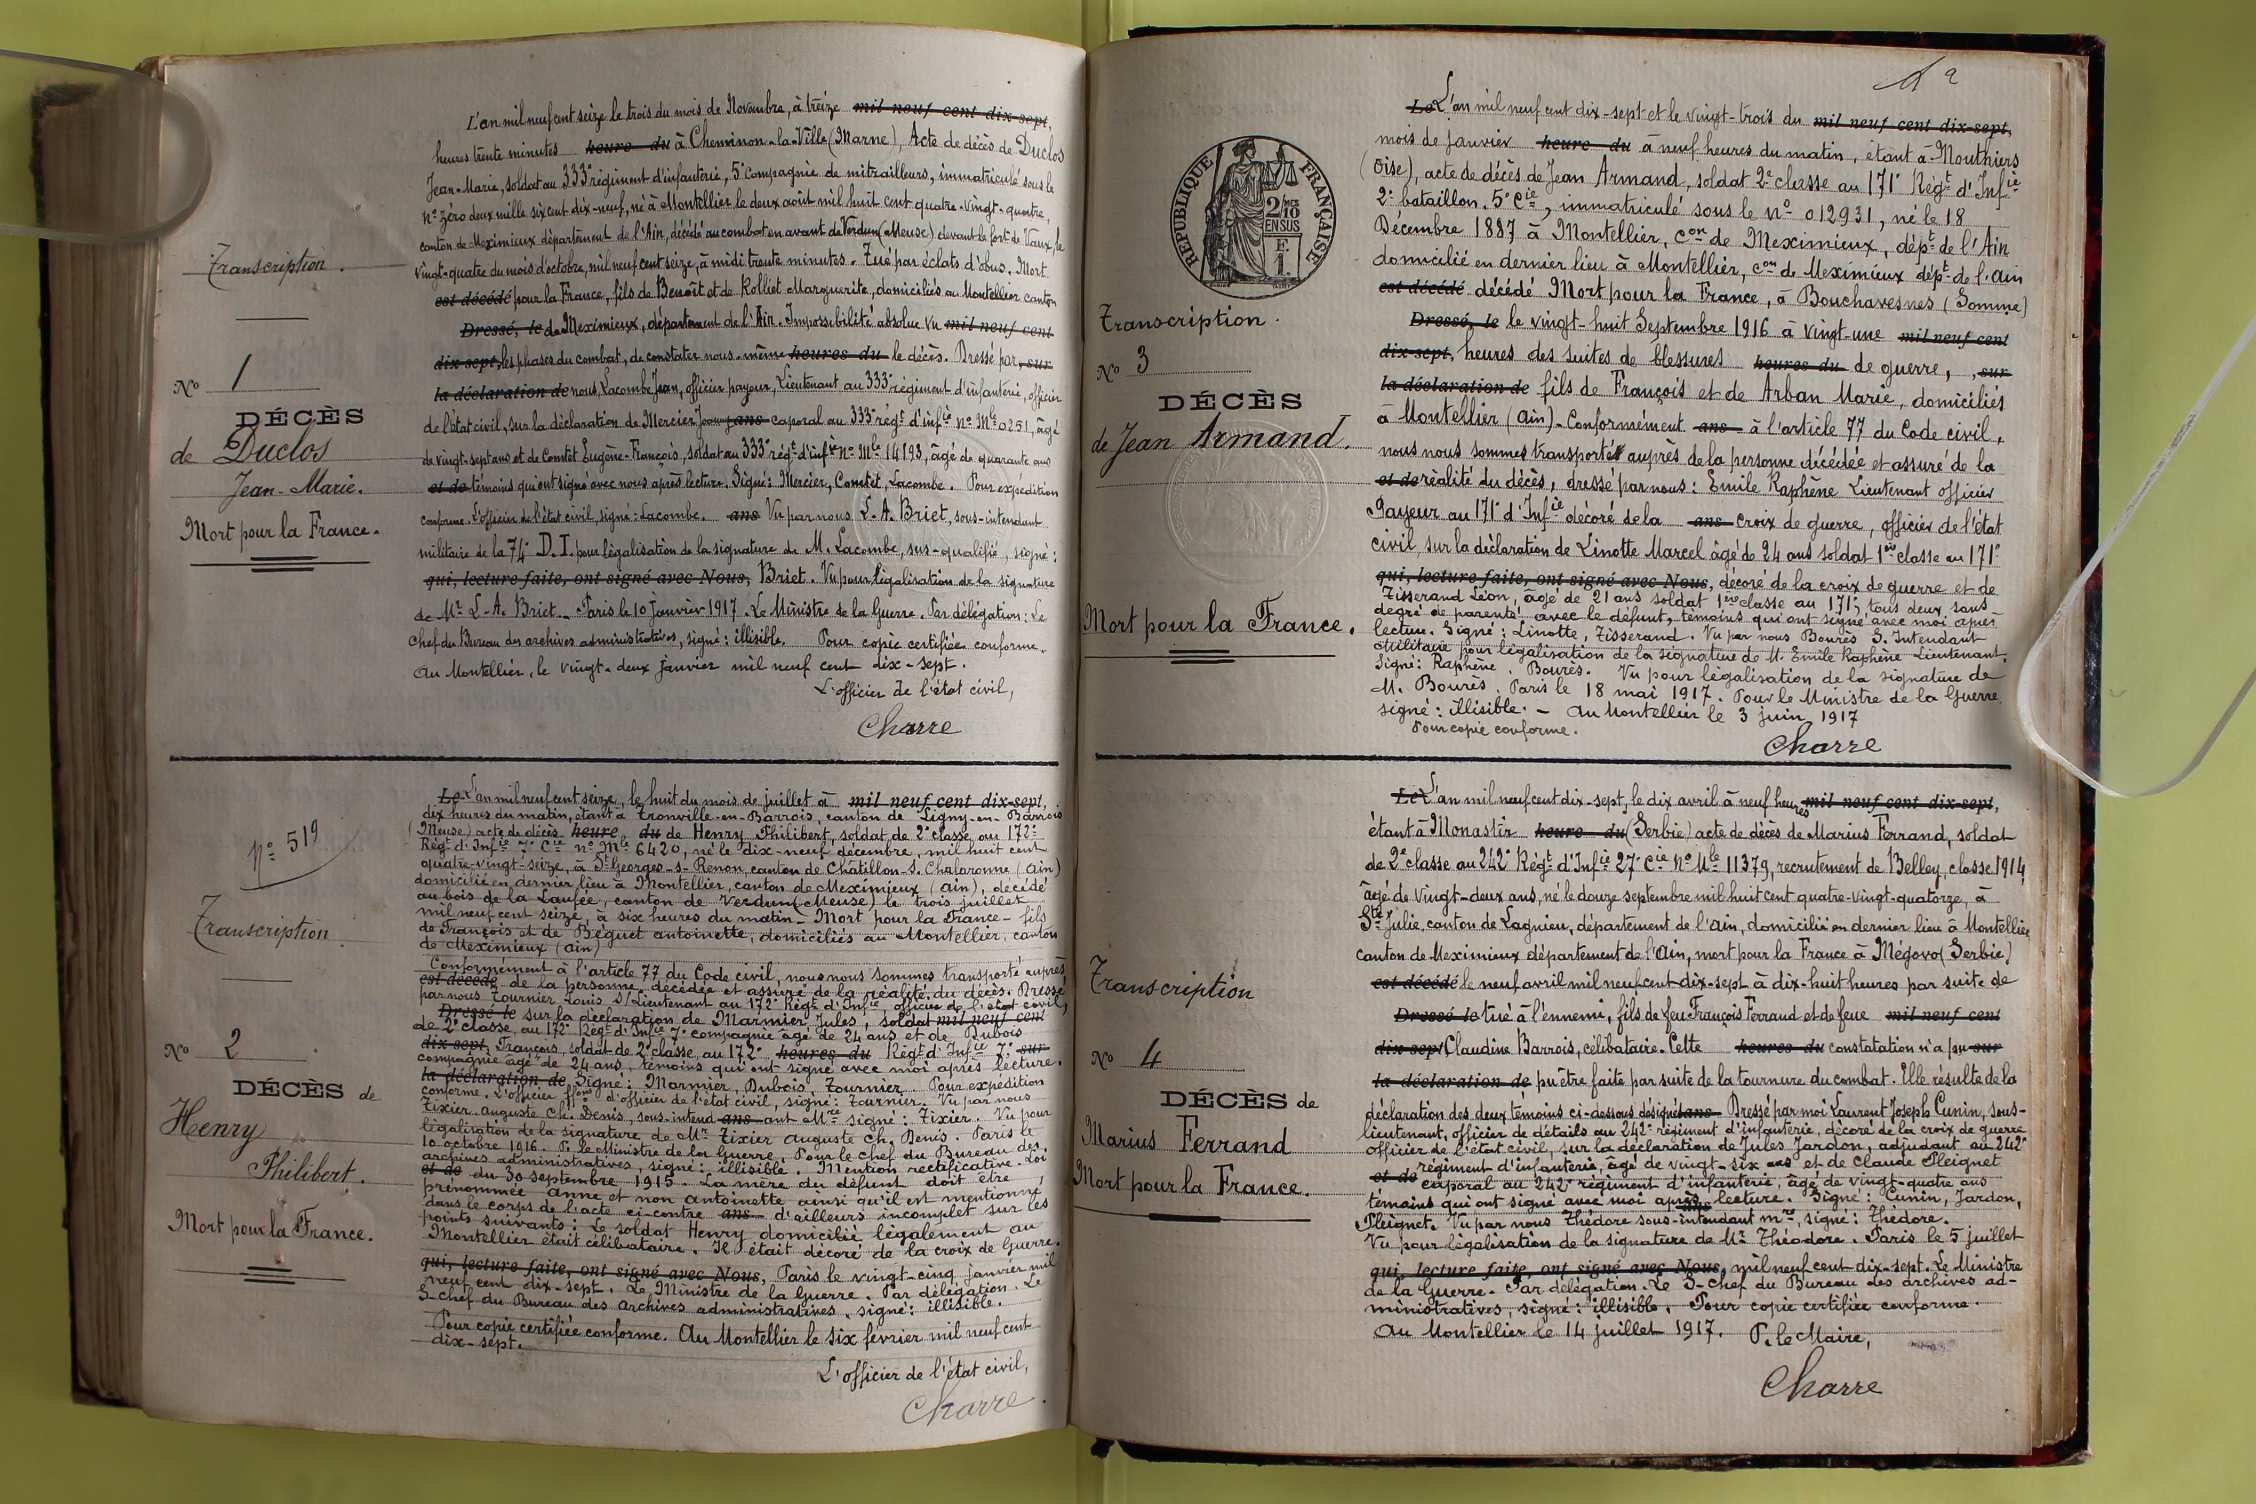 L'an mil neuf cent seize le trois du mois de Novembre, à treize mil neuf cent dix-sept,
heures trente minutes heure du à Cheminon-la-Ville (Marne), Acte de décès de Duclos
Jean-Marie, soldat au 333e régiment d'infanterie, 5e compagnie de mitrailleurs, immatriculé sous le
No zéro deux mille six cent dix-neuf, né à Montellier le deux août mil huit cent quatre-vingt-quatre,
canton de Meximieux département de l'Ain, décédé au combat en avant de Verdun (Meuse) devant le fort de Vaux, le
vingt-quatre du mois d'octobre, mil neuf cent seize, à midi trente minutes. Tué par éclats d'obus. Mort
est décédé pour la France, fils de Benoît et de Rolliet Marguerite, domiciliés au Montellier canton
Dressé, le de Meximieux, département de l'Ain. Impossibilité absolue vu mil neuf cent
dix-sept, les phases du combat, de constater nous-même heures du le décès. Dressé par, sur
la déclaration de nous Lacombe Jean, officier payeur, Lieutenant au 333e régiment d'infanterie, officier
de l'état civil, sur la déclaration de Mercier Jean ans caporal au 333e régt d'infie No Mle 0251, âgé
de vingt-sept ans et de Comtet Eugène-François, soldat au 333e régt d'infie No Mle 14193, âgé de quarante ans
et de témoins qui ont signé avec nous après lecture. Signé: Mercier, Comtet, Lacombe. Pour expédition
conforme. L'officier de l'état civil, signé: Lacombe. ans Vu par nous L.A. Briet, sous-intendant
militaire de la 74e D.I. pour légalisation de la signature de M. Lacombe, sus-qualifié, signé:
qui, lecture faite, ont signé avec Nous, Briet. Vu pour légalisation de la signature
de Mr L-A. Briet. Paris le 10 janvier 1917. Le Ministre de la Guerre. Par délégation: Le
Chef du Bureau des archives administratives, signé: illisible. Pour copie certifiée conforme.
Au Montellier, le vingt-deux janvier mil neuf cent dix-sept.
L'officier de l'état civil,
Charre
Transcription.
No 1
DÉCÈS
de Duclos
Jean-Marie.
Mort pour la France.
Le L'an mil neuf cent seize, le huit du mois de juillet à mil neuf cent dix-sept,
dix heures du matin, étant à Tronville-en-Barrois, canton de Ligny-en-Barrois
(Meuse) acte de décès heure du de Henry Philibert, soldat de 2e classe au 172e
Régt d'Infie 7e Cie no Mle 6420, né le dix-neuf décembre, mil huit cent
quatre-vingt-seize, à St Georges-s-Renon canton de Châtillon-s-Chalaronne (Ain)
domicilié en dernier lieu à Montellier, canton de Meximieux (Ain), décédé
au bois de la Laufée, canton de Verdun (Meuse) le trois juillet
mil neuf cent seize, à six heures du matin. Mort pour la France - fils
de François et de Béguet Antoinette, domiciliés au Montellier, canton
de Meximieux (Ain)
Conformément à l'article 77 du Code civil, nous nous sommes transporté auprès
est décédé de la personne décédée et assuré de la réalité du décès. Dressé
par nous Tournier Louis S/Lieutenant au 172e Régt d'Infie officier de l'état civil,
Dressé le sur la déclaration de Marmier Jules, soldat mil neuf cent
de 2e classe, au 172e Régt d'Infie 7e compagnie âgé de 24 ans et de Dubois
dix-sept, François, soldat de 2e classe, au 172e heures du Régt d'Infie 7e sur
compagnie âgé de 24 ans, témoins qui ont signé avec moi après lecture.
la déclaration de Signé: Marmier, Dubois, Tournier. Pour expédition
conforme. L'officier ffons d'officier de l'état civil, signé: Tournier. Vu par nous
Tixier Auguste Ch. Denis, sous-intend ans ant Mre signé: Tixier. Vu pour
légalisation de la signature de Mr Tixier Auguste Ch. Denis. Paris le
10 octobre 1916. P. le Ministre de la Guerre. Pour le chef du Bureau des
archives administratives, signé: illisible. Mention rectificative. Loi
et de du 30 septembre 1915. La mère du défunt doit être
prénommée Anne et non Antoinette ainsi qu'il est mentionné
dans le corps de l'acte ci-contre ans d'ailleurs incomplet sur les
points suivants: Le soldat Henry domicilié légalement au
Montellier était célibataire. Il était décoré de la croix de Guerre.
qui, lecture faite, ont signé avec Nous, Paris le vingt-cinq janvier mil
neuf cent dix-sept. Le Ministre de la Guerre. Par délégation. Le
S-chef du Bureau des archives administratives, signé: illisible.
Pour copie certifiée conforme. Au Montellier le six février mil neuf cent
dix-sept.
L'officier de l'état civil,
Charre.
No 519
Transcription.
No 2
DÉCÈS de
Henry
Philibert.
Mort pour la France.
Le L'an mil neuf cent dix-sept et le vingt-trois du mil neuf cent dix-sept,
mois de janvier heure du à neuf heures du matin, étant à Mouthiers
(Oise), acte de décès de Jean Armand, soldat 2e classe au 171e Régt d'Infie
2e bataillon. 5e Cie, immatriculé sous le no 012931, né le 18
Décembre 1887 à Montellier, con de Meximieux, dépt de l'Ain
domicilié en dernier lieu à Montellier, con de Meximieux dépt de l'Ain
est décédé décédé Mort pour la France, à Bouchavesnes (Somme)
Dressé, le le vingt-huit Septembre 1916 à vingt-une mil neuf cent
dix-sept, heures des suites de blessures heures du de guerre, , sur
la déclaration de fils de François et de Arban Marie, domiciliés
à Montellier (Ain). Conformément ans à l'article 77 du Code civil,
nous nous sommes transporté auprès de la personne décédée et assuré de la
et de réalité du décès, dressé par nous: Emile Raphène Lieutenant officier
Payeur au 171e d'Infie décoré de la ans croix de guerre, officier de l'état
civil, sur la déclaration de Linotte Marcel âgé de 24 ans soldat 1ère classe au 171e
qui, lecture faite, ont signé avec Nous, décoré de la croix de guerre et de
Tisserand Léon, âgé de 21 ans soldat 1ère classe au 171e, tous deux sans
degré de parenté avec le défunt, témoins qui ont signé avec moi après
lecture. Signé: Linotte, Tisserand. Vu par nous Bourès S. Intendant
Militaire pour légalisation de la signature de M. Emile Raphène Lieutenant.
Signé: Raphène, Bourès. Vu pour légalisation de la signature de
M. Bourès. Paris le 18 mai 1917. Pour le Ministre de la Guerre
signé: illisible. - Au Montellier le 3 juin 1917
Pour copie conforme.
Charre
RÉPUBLIQUE FRANÇAISE
2/10 EN SUS
F.
1.
Transcription.
No 3
DÉCÈS
de Jean Armand.
Mort pour la France.
Le L'an mil neuf cent dix-sept, le dix avril à neuf heures mil neuf cent dix-sept,
étant à Monastir heure du (Serbie) acte de décès de Marius Ferrand, soldat
de 2e classe au 242e Régt d'Infie 27e Cie No Mle 11379, recrutement de Belley, classe 1914,
âgé de vingt-deux ans, né le douze septembre mil huit cent quatre-vingt-quatorze, à
Ste Julie, canton de Lagnieu, département de l'Ain, domicilié en dernier lieu à Montellier
canton de Meximieux département de l'Ain, mort pour la France à Mégovo (Serbie)
est décédé le neuf avril mil neuf cent dix-sept à dix-huit heures par suite de
Dressé le tué à l'ennemi, fils de feu François Ferrand et de feue mil neuf cent
dix-sept Claudine Barrois, célibataire. Cette heures du constatation n'a pu sur
la déclaration de pu être faite par suite de la tournure du combat. Elle résulte de la
déclaration des deux témoins ci-dessous désignés ans Dressé par moi Laurent Joseph Cunin, sous-
lieutenant, officier de détails au 242e régiment d'infanterie, décoré de la croix de guerre
officier de l'état civil, sur la déclaration de Jules Jardon, adjudant au 242e
et de régiment d'infanterie, âgé de vingt-six ans et de Claude Pleignet
caporal au 242e régiment d'infanterie, âgé de vingt-quatre ans
témoins qui ont signé avec moi après lecture. Signé: Cunin, Jardon,
ans
Pleignet. Vu par nous Thédore sous-intendant mre, signé: Thédore.
Vu pour légalisation de la signature de Mr Théodore. Paris le 5 juillet
qui, lecture faite, ont signé avec Nous, mil neuf cent dix-sept. Le Ministre
de la Guerre. Par délégation. Le S-chef du Bureau des archives ad-
ministratives, signé: illisible. Pour copie certifiée conforme.
Au Montellier le 14 juillet 1917. P. le Maire,
Charre
Transcription
No 4
DÉCÈS de
Marius Ferrand
Mort pour la France.